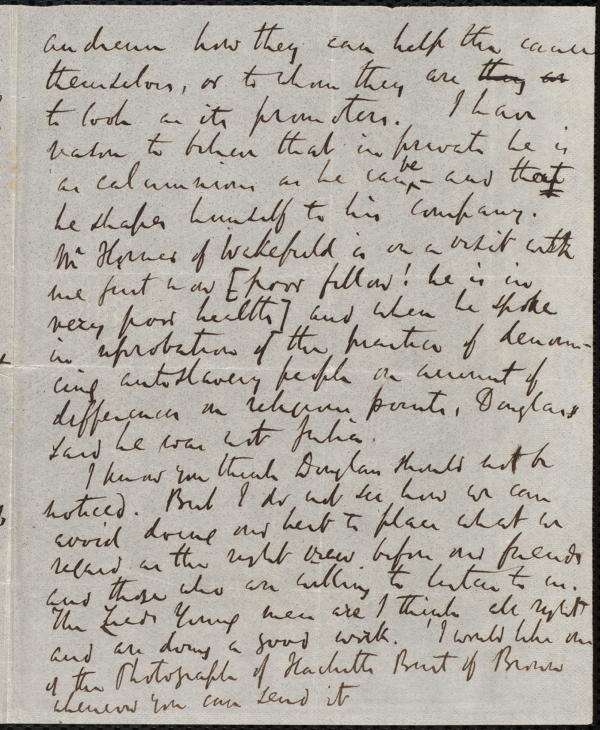 audience how they can help the cause
themselves, or to whom they are they are
to look as its promoters. I have
reason to believe that in private he is
as calumnious as he can be – and that
he shapes himself to his company.
Mr Hornes of Wakefield is on a visit with
me just now [poor fellow! he is in
very poor health] and when he spoke
in reprobation of the practice of denoun-
cing antislavery people on account of
differences on religious points, Douglass
said he was not
I know you think Douglass should not be
noticed. But I do not see how we can
avoid doing our best to place what we
regard as the right view before our friends
and those who are willing to listen to us.
The Leeds Young men are I think all right
and are doing a good work. I would like one
of the Photographs of Hacketts Bust of Brown
whenever you can send it